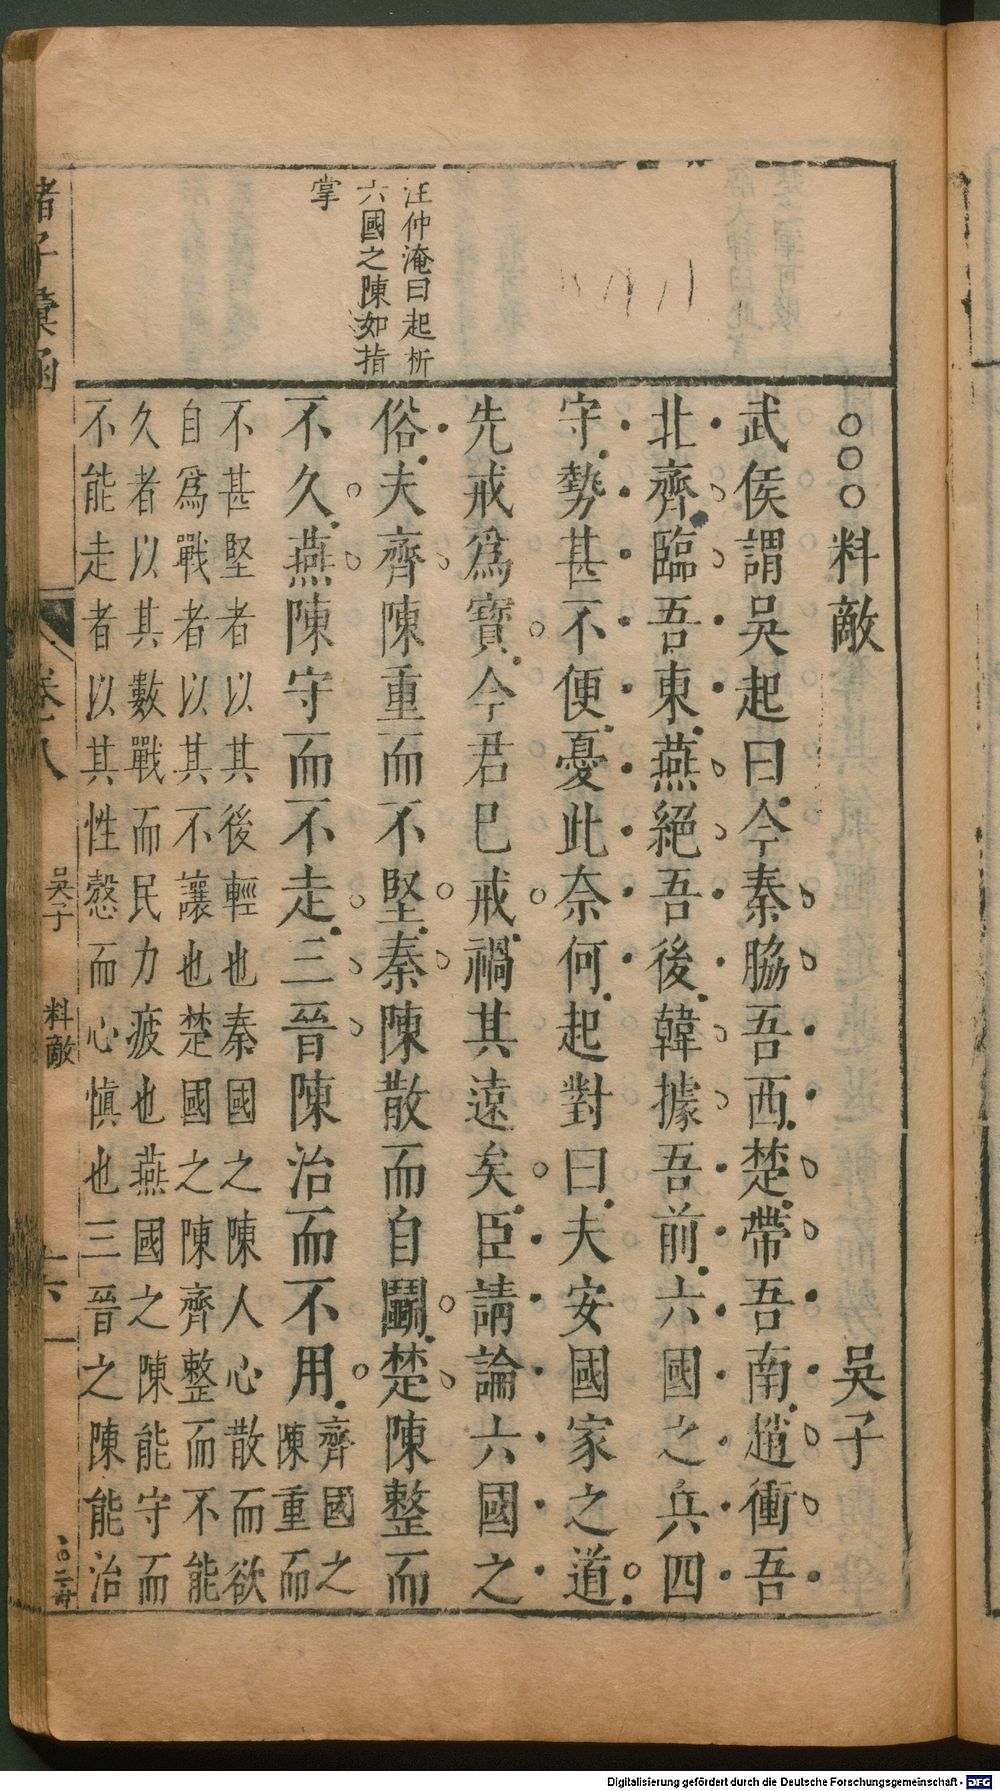 汪仲淹曰起析
六國之陳如指
掌
○○○料敵 吳子
武侯謂吳起曰今秦脇吾西楚帶吾南趙衝吾
北齊臨吾東燕絕吾後韓據吾前六國之兵四
守勢甚不便憂此奈何起對曰夫安國家之道
先戒爲寶今君已戒禍其遠矣臣請論六國之
俗夫齊陳重而不堅秦陳散而自鬭楚陳整而
不久燕陳守而不走三晉陳治而不用
齊國之
陳重而
不甚堅者以其後輕也秦國之陳人心散而欲
自爲戰者以其不讓也楚國之陳齊整而不能
久者以其數戰而民力疲也燕國之陳能守而
不能走者以其性慤而心慎也三晉之陳能治
諸子彙函 吳子 料敵
Digitalisierung gefördert durch die Deutsche Forschungsgemeinschaft - DFG